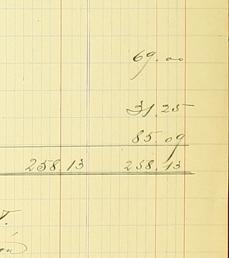 69.00
31.25
85.09
258.13 258.13